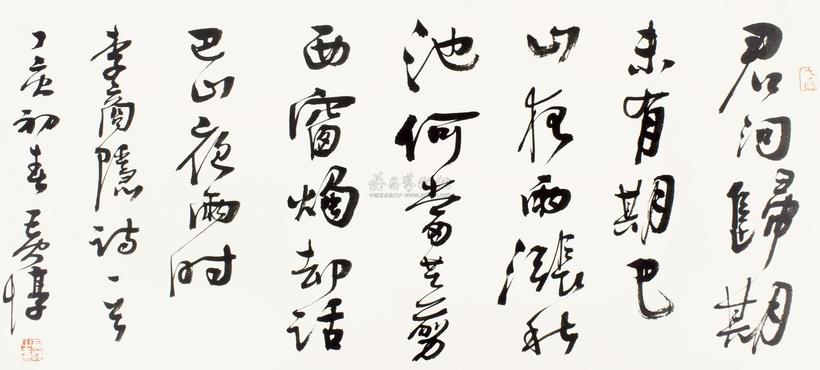 君问歸期
未有期巴
山夜雨漲秋
池何當共剪
西窗燭却话
巴山夜雨时
李商隱诗一首
丁亥初春